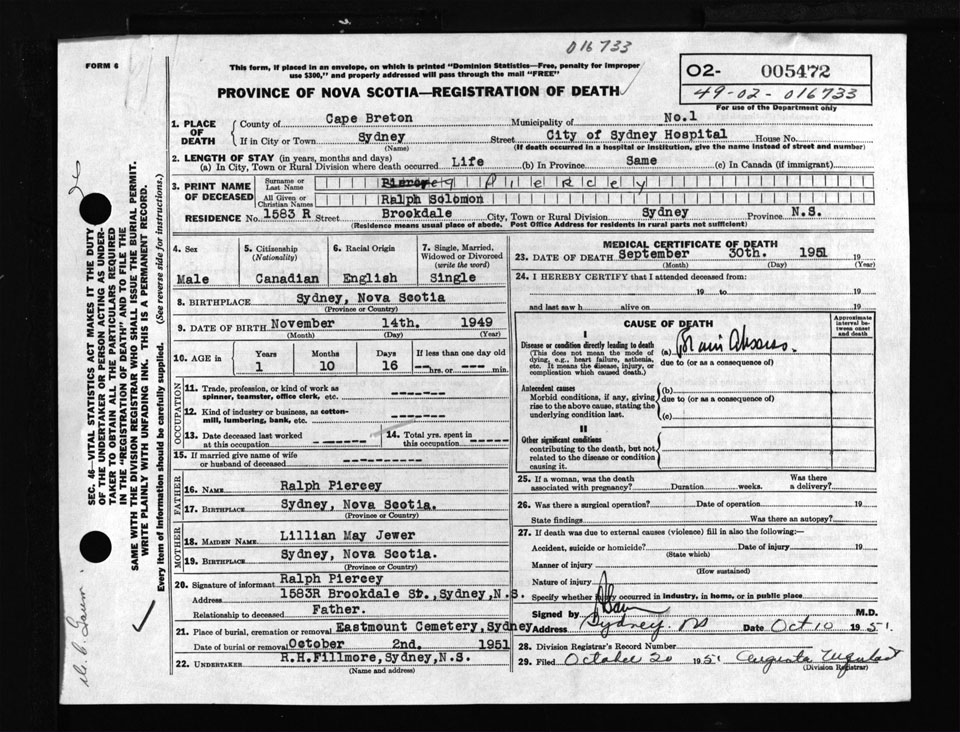 016733
FORM 6
This form, if placed in an envelope, on which is printed "Dominion Statistics—Free, penalty for improper
use $300," and properly addressed will pass through the mail "FREE"
PROVINCE OF NOVA SCOTIA—REGISTRATION OF DEATH
O2- 005472
49-02-016733
For use of the Department only
1. PLACE OF DEATH
County of Cape Breton Municipality of No.1
If in City or Town Sydney Street City of Sydney Hospital House No.
(Name) (If death occurred in a hospital or institution, give the name instead of street and number)
2. LENGTH OF STAY (in years, months and days)
(a) In City, Town or Rural Division where death occurred Life (b) In Province Same (c) In Canada (if immigrant)
3. PRINT NAME OF DECEASED
Surname or Last Name Piercey
All Given or Christian Names Ralph Solomon
RESIDENCE No. 1583 R Street Brookdale City, Town or Rural Division Sydney Province N.S.
(Residence means usual place of abode. Post Office Address for residents in rural parts not sufficient)
4. Sex Male
5. Citizenship (Nationality) Canadian
6. Racial Origin English
7. Single, Married, Widowed or Divorced (write the word) Single
8. BIRTHPLACE Sydney, Nova Scotia
(Province or Country)
9. DATE OF BIRTH November 14th. 1949
(Month) (Day) (Year)
10. AGE in Years 1 Months 10 Days 16 If less than one day old -- hrs. or -- min.
OCCUPATION
11. Trade, profession, or kind of work as
spinner, teamster, office clerk, etc. ------
12. Kind of industry or business, as cotton-
mill, lumbering, bank, etc. ------
13. Date deceased last worked at this occupation ------
14. Total yrs. spent in this occupation -----
15. If married give name of wife
or husband of deceased ---------
FATHER
16. NAME Ralph Piercey
17. BIRTHPLACE Sydney, Nova Scotia.
(Province or Country)
MOTHER
18. MAIDEN NAME Lillian May Jewer
19. BIRTHPLACE Sydney, Nova Scotia.
(Province or Country)
20. Signature of informant Ralph Piercey
Address 1583R Brookdale St.,Sydney,N.S.
Relationship to deceased Father.
21. Place of burial, cremation or removal Eastmount Cemetery,Sydney
Date of burial or removal October 2nd. 1951
22. UNDERTAKER R.H.Fillmore,Sydney,N.S.
(Name and address)
MEDICAL CERTIFICATE OF DEATH
23. DATE OF DEATH September 30th. 1951 19
(Month) (Day) (Year)
24. I HEREBY CERTIFY that I attended deceased from:
19 to 19
and last saw h alive on 19
CAUSE OF DEATH
Approximate interval between onset and death
I
Disease or condition directly leading to death
(This does not mean the mode of
dying, e.g., heart failure, asthenia,
etc. It means the disease, injury, or
complication which caused death.)
(a) Brain Abscess.
due to (or as a consequence of)
Antecedent causes
Morbid conditions, if any, giving
rise to the above cause, stating the
underlying condition last.
(b)
due to (or as a consequence of)
(c)
II
Other significant conditions
contributing to the death, but not
related to the disease or condition
causing it.
25. If a woman, was the death
associated with pregnancy? Duration weeks. Was there a delivery?
26. Was there a surgical operation? Date of operation 19
State findings Was there an autopsy?
27. If death was due to external causes (violence) fill in also the following:—
Accident, suicide or homicide? Date of injury 19
(State which)
Manner of injury
(How sustained)
Nature of injury
Specify whether injury occurred in industry, in home, or in public place
Signed by M.D.
Address Sydney. NS Date Oct 10 1951.
28. Division Registrar's Record Number
29. Filed October 20 1951 Augusta
(Division Registrar)
SEC. 46—VITAL STATISTICS ACT MAKES IT THE DUTY
OF THE UNDERTAKER OR PERSON ACTING AS UNDER-
TAKER TO OBTAIN ALL THE PARTICULARS REQUIRED
IN THE "REGISTRATION OF DEATH" AND TO FILE THE
SAME WITH THE DIVISION REGISTRAR WHO SHALL ISSUE THE BURIAL PERMIT.
WRITE PLAINLY WITH UNFADING INK. THIS IS A PERMANENT RECORD.
Every item of information should be carefully supplied. (See reverse side for instructions.)